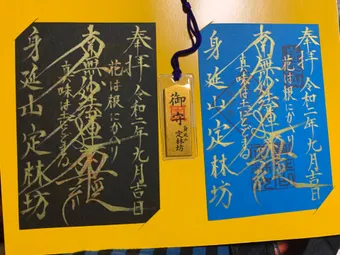 奉拝 令和二年九月吉日
花は根にかへり
南無妙法蓮華経
真味は土にとどまる
身延山 定林坊
御守
身延山
定林坊
奉拝 令和二年九月吉日
花は根にかへり
南無妙法蓮華経
真味は土にとどまる
身延山 定林坊